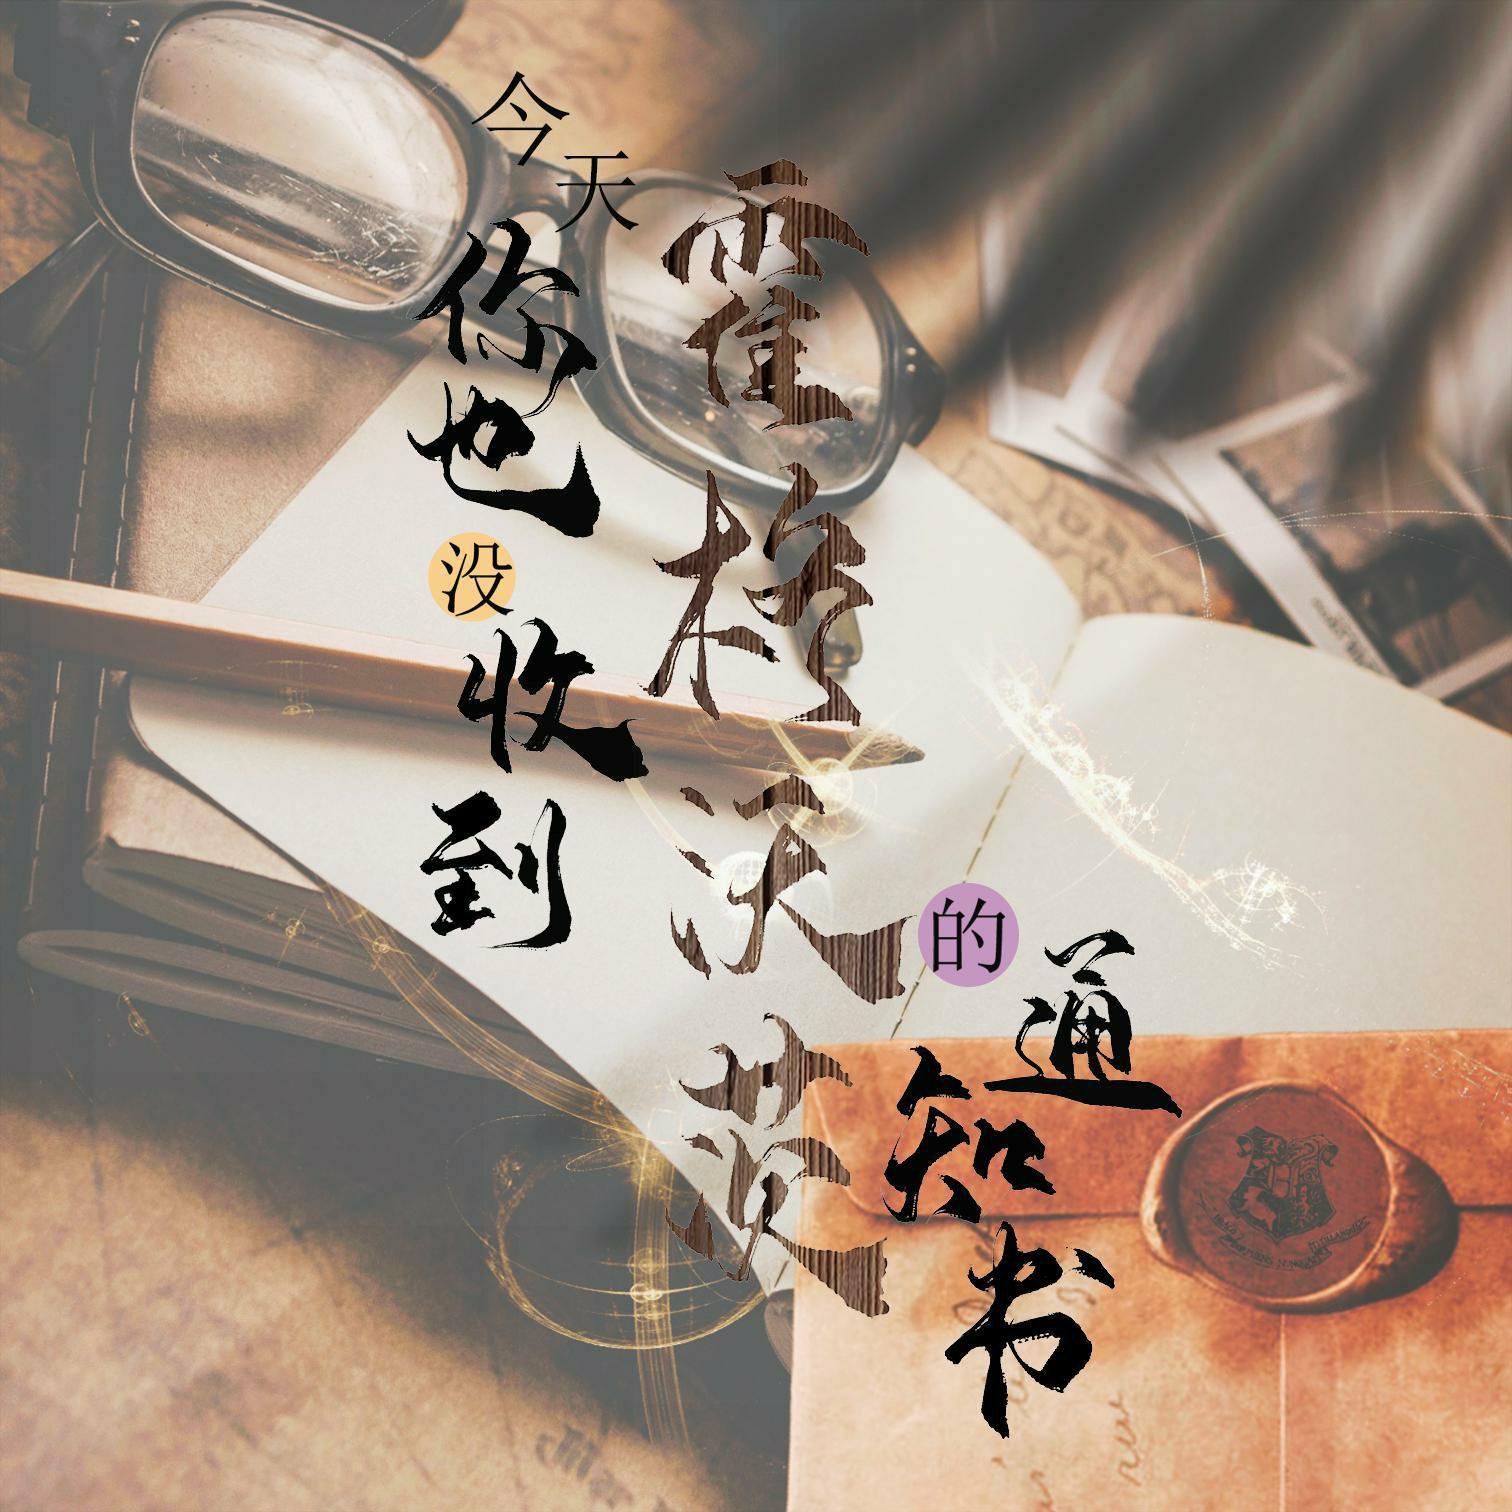 今天
你也没收到
霍格沃茨
的
通知书